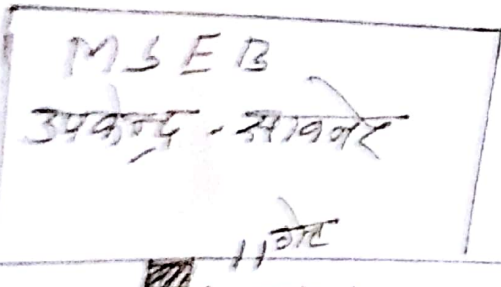 MSEB
उपकेन्द्र - सावनेर
गेट